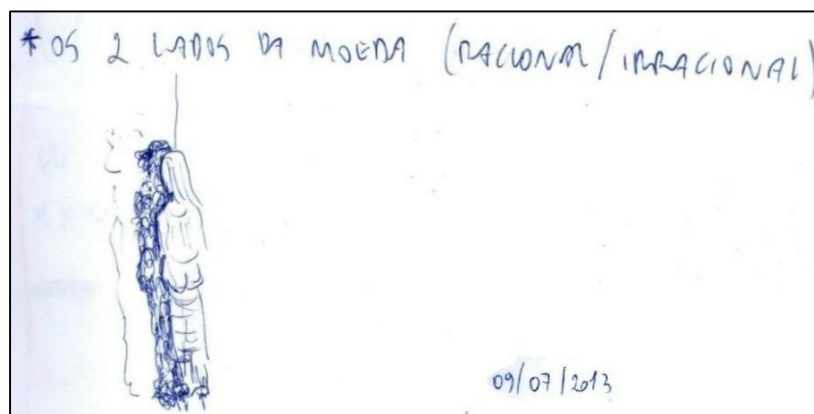 * OS 2 LADOS DA MOEDA (RACIONAL/IRRACIONAL)
09/07/2013